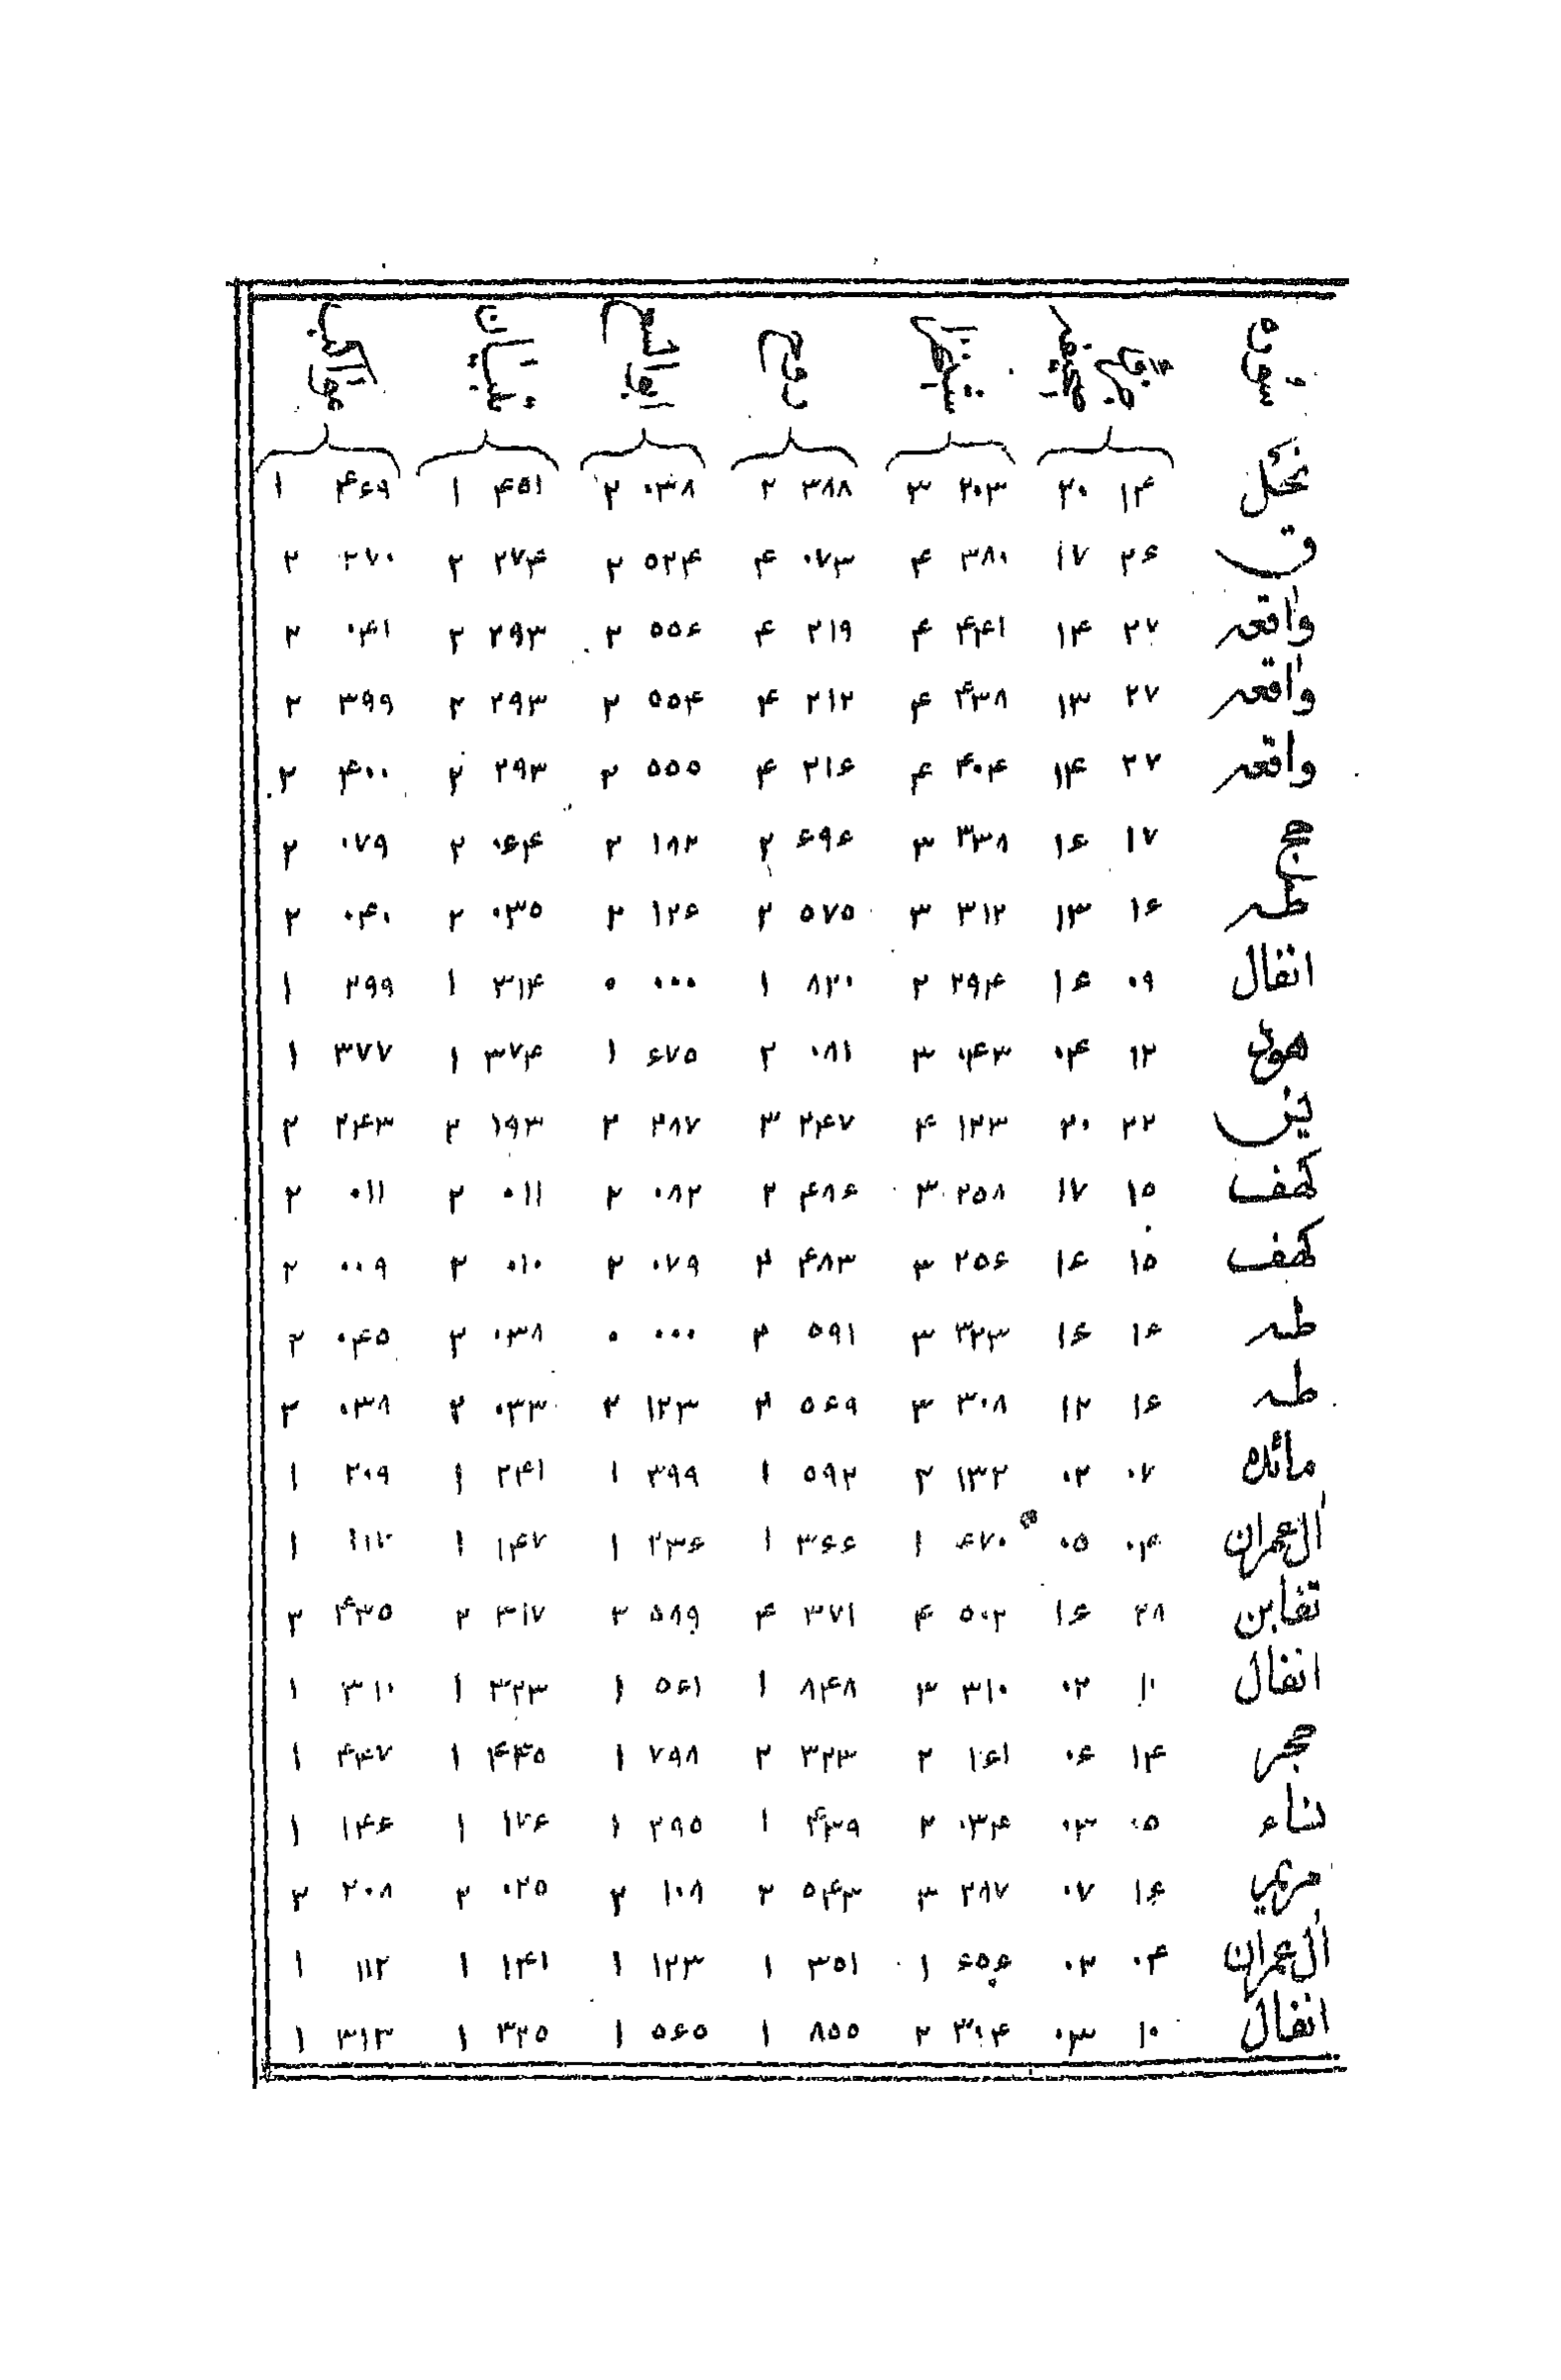 سوره
نحل ۱۴ ۲۰ ۲۰۳ ۳ ۳۸۸ ۲ ۰۳۸ ۲ ۴۵۱ ۱ ۴۶۹ ۱
ق ۲۶ ۱۷ ۳۸۰ ۴ ۰۷۳ ۴ ۵۲۴ ۲ ۲۷۴ ۲ ۲۷۰ ۲
واقعه ۲۷ ۱۴ ۴۴۱ ۴ ۲۱۹ ۴ ۵۵۶ ۲ ۲۹۳ ۲ ۰۴۱ ۲
واقعه ۲۷ ۱۳ ۴۳۸ ۴ ۲۱۲ ۴ ۵۵۴ ۲ ۲۹۳ ۲ ۳۹۹ ۲
واقعه ۲۷ ۱۴ ۴۰۴ ۴ ۲۱۶ ۴ ۵۵۵ ۲ ۲۹۳ ۲ ۴۰۰ ۲
حج ۱۷ ۱۶ ۳۳۸ ۳ ۶۹۶ ۲ ۱۸۲ ۲ ۰۶۴ ۲ ۰۷۹ ۲
طه ۱۶ ۱۳ ۳۱۲ ۳ ۵۷۵ ۲ ۱۲۶ ۲ ۰۳۵ ۲ ۰۴۰ ۲
انفال ۰۹ ۱۶ ۲۹۴ ۲ ۸۲۰ ۱ ۰۰۰ ۰ ۳۱۴ ۱ ۲۹۹ ۱
هود ۱۲ ۰۴ ۰۴۳ ۳ ۰۸۱ ۲ ۶۷۵ ۱ ۳۷۴ ۱ ۳۷۷ ۱
یس ۲۲ ۲۰ ۱۲۳ ۴ ۲۴۷ ۳ ۲۸۷ ۲ ۱۹۳ ۲ ۲۴۳ ۲
کهف ۱۵ ۱۷ ۲۵۸ ۳ ۴۸۶ ۲ ۰۸۲ ۲ ۰۱۱ ۲ ۰۱۱ ۲
کهف ۱۵ ۱۶ ۲۵۶ ۳ ۴۸۳ ۲ ۰۷۹ ۲ ۰۱۰ ۲ ۰۰۹ ۲
طه ۱۶ ۱۶ ۳۲۳ ۳ ۵۹۱ ۲ ۰۰۰ ۰ ۰۳۸ ۲ ۰۴۵ ۲
طه ۱۶ ۱۲ ۳۰۸ ۳ ۵۶۹ ۲ ۱۲۳ ۲ ۰۳۳ ۲ ۰۳۸ ۲
مائده ۰۷ ۰۲ ۱۳۲ ۲ ۵۹۲ ۱ ۳۹۹ ۱ ۲۴۱ ۱ ۲۰۹ ۱
ال عمران ۰۴ ۰۵ ۶۷۰ ۱ ۳۶۶ ۱ ۲۳۶ ۱ ۱۴۷ ۱ ۱۱۷ ۱
تغابن ۲۸ ۱۶ ۵۰۲ ۴ ۳۷۱ ۴ ۵۸۹ ۲ ۳۱۷ ۲ ۴۳۵ ۲
انفال ۱۰ ۰۲ ۳۱۰ ۳ ۸۴۸ ۱ ۵۶۱ ۱ ۳۲۳ ۱ ۳۱۰ ۱
حجر ۱۴ ۰۶ ۱۶۱ ۲ ۳۲۳ ۲ ۷۹۸ ۱ ۴۴۵ ۱ ۴۴۷ ۱
نساء ۰۵ ۰۳ ۰۳۴ ۲ ۴۳۹ ۱ ۲۹۵ ۱ ۱۷۶ ۱ ۱۴۶ ۱
مریم ۱۶ ۰۷ ۲۸۷ ۳ ۵۴۳ ۲ ۱۰۸ ۲ ۰۲۵ ۲ ۲۰۸ ۲
ال عمران ۰۴ ۰۳ ۶۵۶ ۱ ۳۵۱ ۱ ۱۲۳ ۱ ۱۴۱ ۱ ۱۱۲ ۱
انفال ۱۰ ۰۳ ۳۰۴ ۲ ۸۵۵ ۱ ۵۶۵ ۱ ۳۲۵ ۱ ۳۱۳ ۱